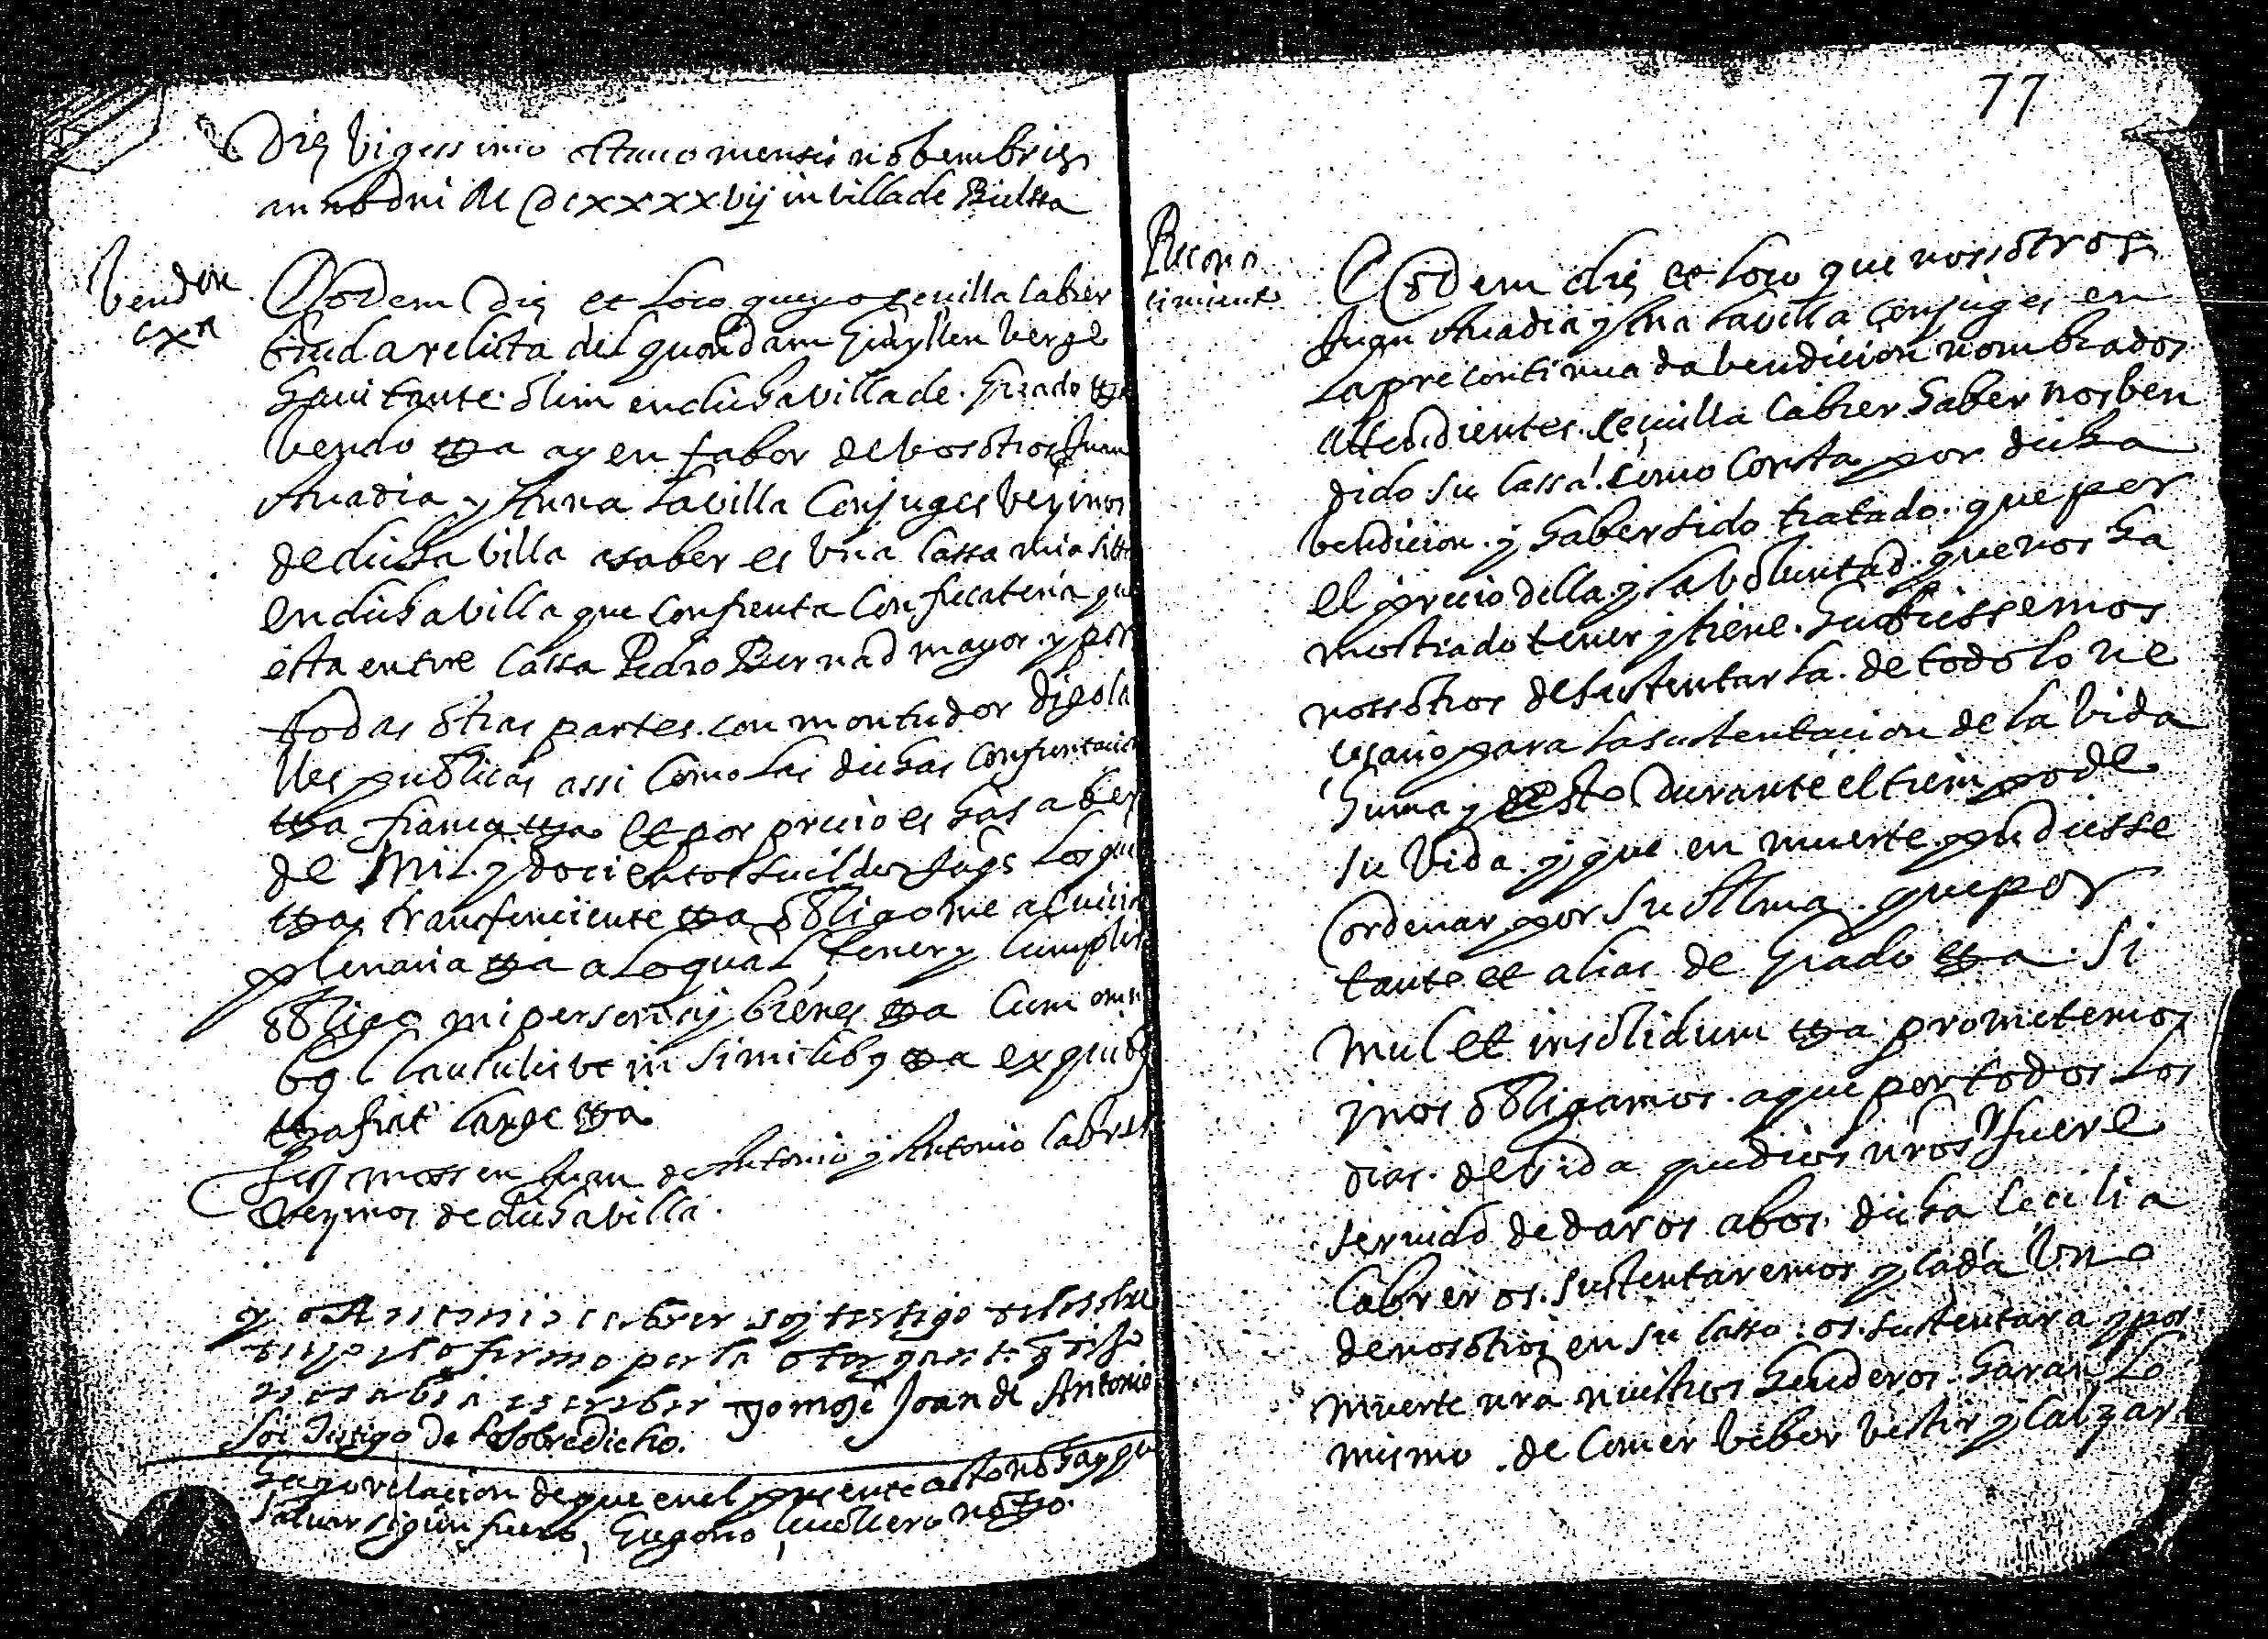 Die bigessimo octauo mensis nobembris
anno dni M DCxxxxvij in billa de Bielssa
bendion
exa
Eodem die et loco que yo Ceçilla Cabrer
biuda relicta del quondam Guyllen berge
hauitante olim en dicha villa de grado &a
bendo &a ay en fabor de bosotros Juan
Anadia y Anna Lavilla Conjuges beçinos
de dicha billa a saber es bna cassa mia sitia
en dicha villa que confrenta con ferrateria que
esta entre Cassa Pedro Bernad mayor y por
todas otras partes con montudor digo la
lles publicas assi como las dichas confrentacio
&a franca &a et por precio es ha saber
de Mil y docientos sueldos Jaqs los que
&a transferiente &a obligome a euiccio
plenaria &a a lo qual tener y cumplir
obligo mi persona y bienes &a Cum omni
bq clausulis vt in similibq &a ex quibq
&a fiat large &a
Tes mossen Juan de Antonio y Antonio Cabrer
beçinos de dicha villa.
yo Antonio cabrer soy testigo de lo sobre
dicho y lo firmo por la otorgante q dijo
no sabia escrebir yo mosē Joan de Antonio
soi Testigo de lo sobredicho.
hago relacion de que en el presente acto no hay que
saluar segun fuero, Gregorio notro.
77
Recono
cimiento
Eodem die et loco que nossotros
Juan Anadia y Ana Lavilla Conjuges en
la precontinuada bendicion nombrados
Attendientes Ceçilla Cabrer haber nos ben
dido su Cassa como consta por dicha
bendicion y haber sido tratado que por
el precio della y la boluntad que nos ha
mostrado tener y tiene hubiessemos
nossotros de sustentarla de todo lo ne
cesario para la sustentacion de la bida
huma y esto durante el tiempo de
su bida y que en muerte pudiesse
ordenar por su Alma que por
tanto et alias de grado &a Si
mul et insolidum &a prometemos
y nos obligamos a que por todos los
dias de bida que dios nros fuere
seruido de daros a bos dicha Cecilia
Cabrer os sustentaremos y cada bno
de nosotros en su cassa os sustentara y por
muerte nra nuestros herederos haran lo
mismo de comer beber bestir y calzar